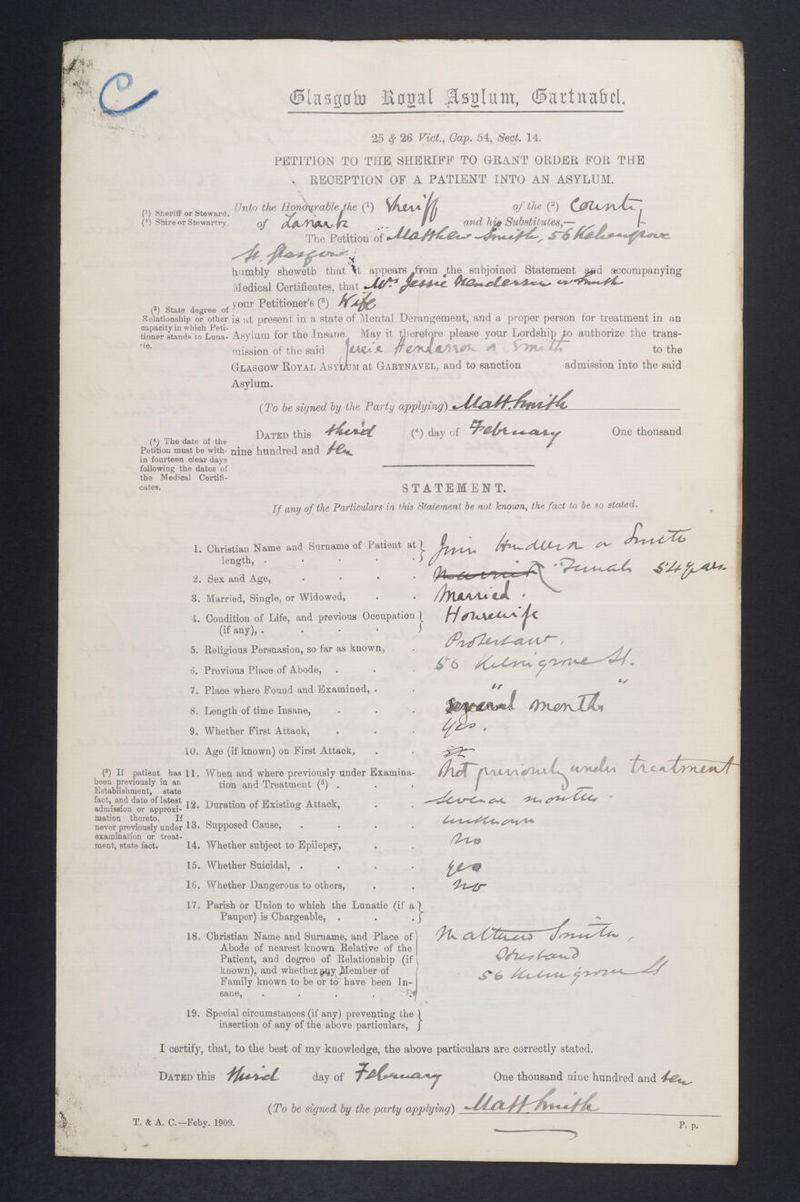 C
Glasgow Royal Asylum, Gartnabel.
25 & 26 Vict., Cap. 54, Sect. 14.
PETITION TO THE SHERIFF TO GRANT ORDER FOR THE
RECEPTION OF A PATIENT INTO AN ASYLUM.
(¹) Sheriff or Steward.
(²) Shire or Stewartry.
Unto the Honourable the (¹) Sheriff of the (²) County
of Lanark ... and his Substitutes,—
The Petition of Matthew Smith, 56 Kelvingrove
St. Glasgow
humbly sheweth that it appears from the subjoined Statement and accompanying
Medical Certificates, that Mrs Jessie Henderson or Smith
your Petitioner's (³) Wife
(³) State degree of
Relationship or other
capacity in which Peti-
tioner stands to Luna-
tic.
is at present in a state of Mental Derangement, and a proper person for treatment in an
Asylum for the Insane. May it therefore please your Lordship to authorize the trans-
mission of the said Jessie Henderson or Smith to the
GLASGOW ROYAL ASYLUM at GARTNAVEL, and to sanction admission into the said
Asylum.
(To be signed by the Party applying) Matt Smith
(⁴) The date of the
Petition must be with-
in fourteen clear days
following the dates of
the Medical Certifi-
cates.
DATED this third (⁴) day of February One thousand
nine hundred and ten
STATEMENT.
If any of the Particulars in this Statement be not known, the fact to be so stated.
1. Christian Name and Surname of Patient at
length, . . . . . Henderson or Smith
2. Sex and Age, . . . . Married Female 54 years
3. Married, Single, or Widowed, . . Married.
4. Condition of Life, and previous Occupation
(if any), . . . . . Housewife
5. Religious Persuasion, so far as known, . Protestant.
6. Previous Place of Abode, . . . 56 Kelvingrove St.
7. Place where Found and Examined, . . " "
8. Length of time Insane, . . . several months
9. Whether First Attack, . . . yes.
10. Age (if known) on First Attack, . .
(⁵) If patient has
been previously in an
Establishment, state
fact, and date of latest
admission or approxi-
mation thereto. If
never previously under
examination or treat-
ment, state fact.
11. When and where previously under Examina-
tion and Treatment (⁵) . . . Not previously under treatment
12. Duration of Existing Attack, . . Several months.
13. Supposed Cause, . . . . unknown
14. Whether subject to Epilepsy, . . No
15. Whether Suicidal, . . . . yes
16. Whether Dangerous to others, . . No
17. Parish or Union to which the Lunatic (if a
Pauper) is Chargeable, . . .
18. Christian Name and Surname, and Place of
Abode of nearest known Relative of the
Patient, and degree of Relationship (if
known), and whether any Member of
Family known to be or to have been In-
sane, . . . . .
Matthew Smith,
Husband
56 Kelvingrove St
19. Special circumstances (if any) preventing the
insertion of any of the above particulars,
I certify, that, to the best of my knowledge, the above particulars are correctly stated.
DATED this third day of February One thousand nine hundred and ten
(To be signed by the party applying) Matt Smith
T. & A. C.—Feby. 1909.
P. p.